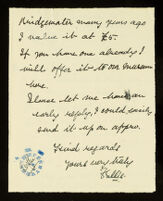 Bridgewater many years ago
I value it at £5.
If you have one already I
will offer it to our Museum
here.
Please let me have an
early reply, I could easily
send it up on appro.
Kind regards
Yours very truly